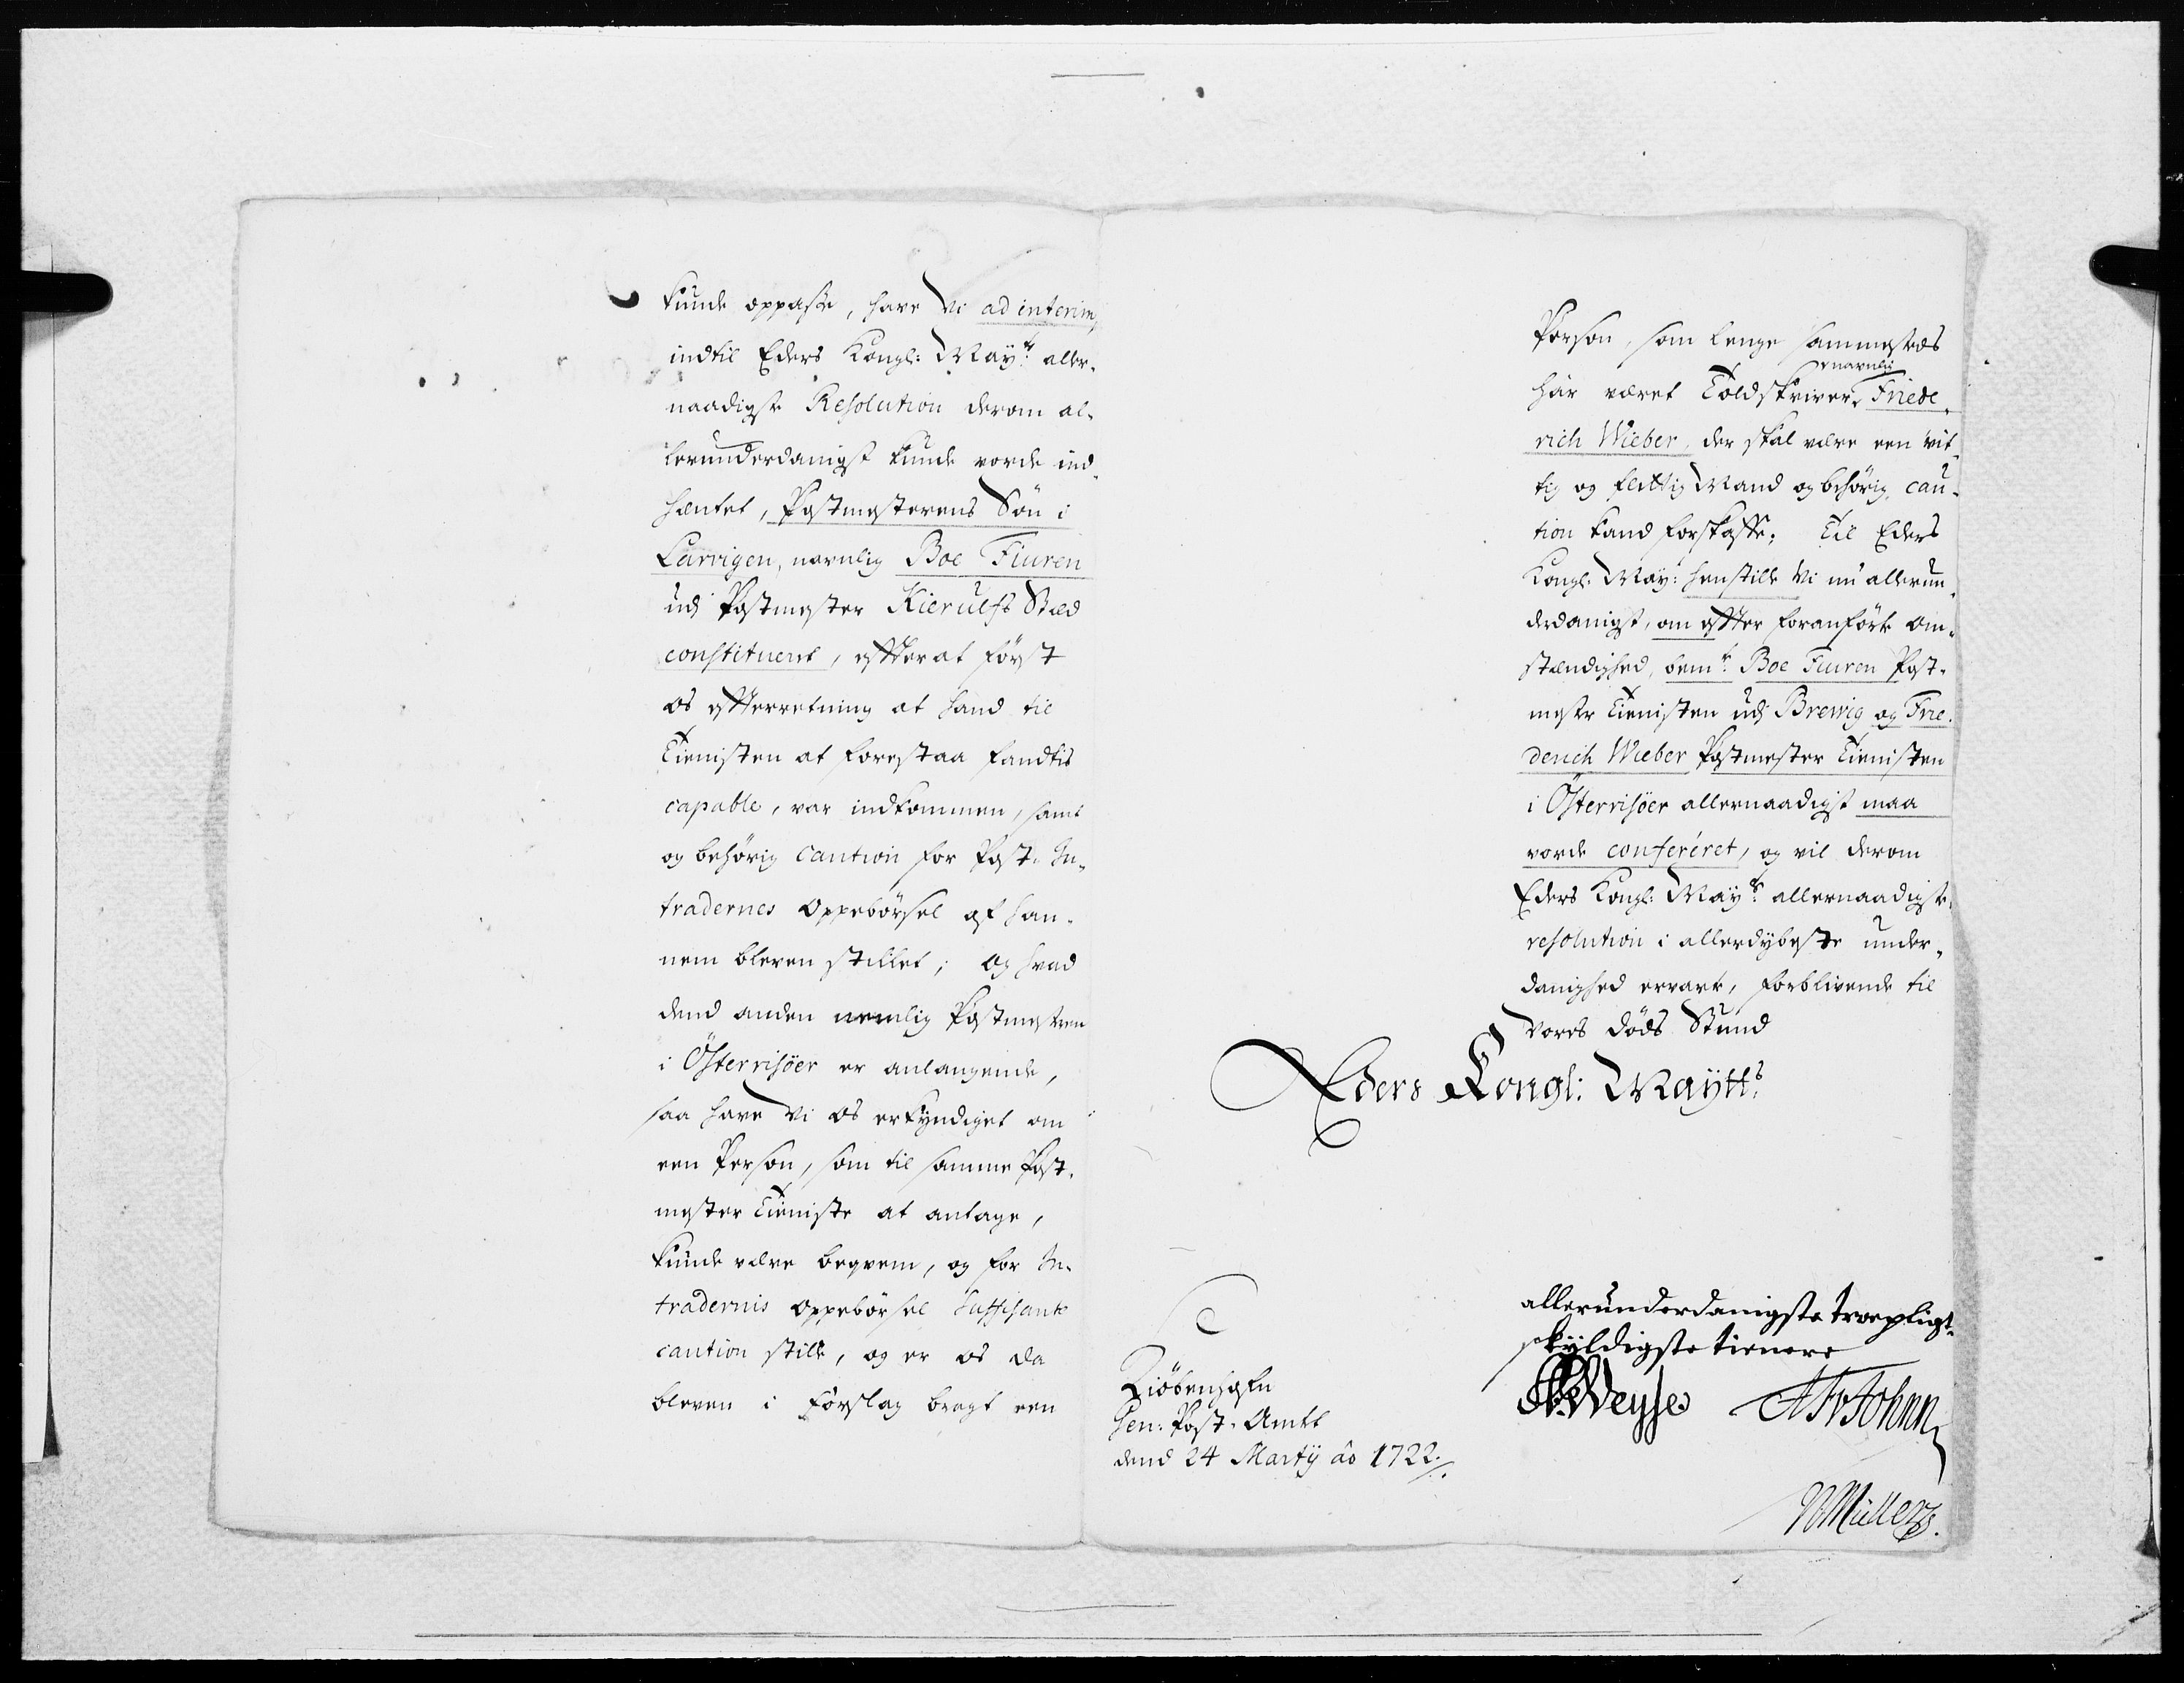 kunde oppasse, have Vi ad interim,
indtil Eders Kongl: Mayts: aller-
naadigste Resolution derom al-
lerunderdanigst kunde vorde ind-
hentet, Postmesterens Søn i
Larvigen, navnlig Boe Fiuren
udi Postmester Kierulfs Sted
constituerit, effterat først
os effterretning at hand til
Tienisten at forestaa fandtis
capable, var indkommen, samt
og behørig caution for Post-In-
tradernes Oppebørsel af han-
nem bleven stillet; Og hvad
dend anden nemlig Postmesteren
i Østerrisöer er anlangende,
saa have Vi os erkyndiget om
een Person, som til samme Post-
mester Tieniste at antage,
kunde være beqvem, og for In-
tradernis Oppebørsel Suffisante
caution stille, og er os da
bleven i Forslag bragt een
Person, som lenge sammesteds
navnlig
hâr været Toldskriver, Friede-
rich Wieber, der skal være een vit-
tig og flittig Mand og behørig cau-
tion kand forskaffe; Til Eders
Kongl. Mayt: henstille Vi nu allerun-
derdanigst, om effter foranførte Om-
stændighed, bemte: Boe Fiuren Post-
mester Tienisten udi Brewig og Frie-
derich Wieber Postmester Tienisten
i Østerrisöer allernaadigst maa
vorde conferéret, og vil derom
Eders Kongl: Mayts: allernaadigste
resolution i allerdybeste under-
danighed ervarte, forblivende til
Vores Døds Stund
Eders Kongl: Maytts:
allerunderdanigste troepligt-
skyldigste tienere
Kiöbenhafn
Gen: Post-Amtet
dend 24 Martÿ ao 1722./.
Weyse
WMüller.